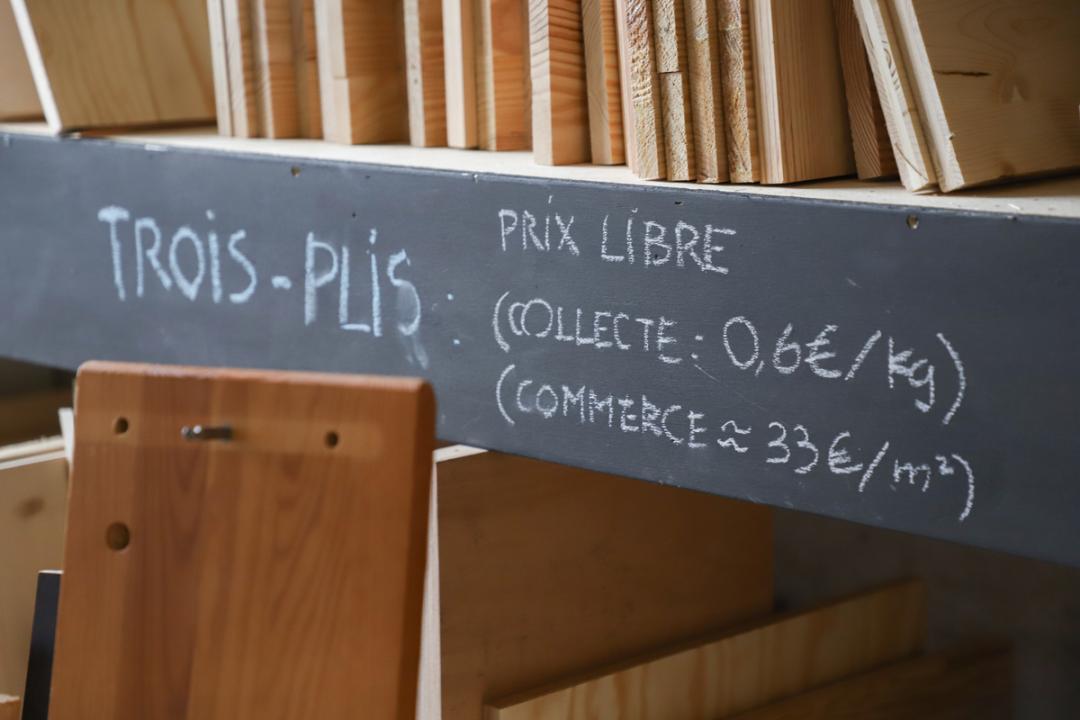 TROIS-PLIS :
PRIX LIBRE
(COLLECTE : 0,6€/kg)
(COMMERCE ≈ 33€/m²)